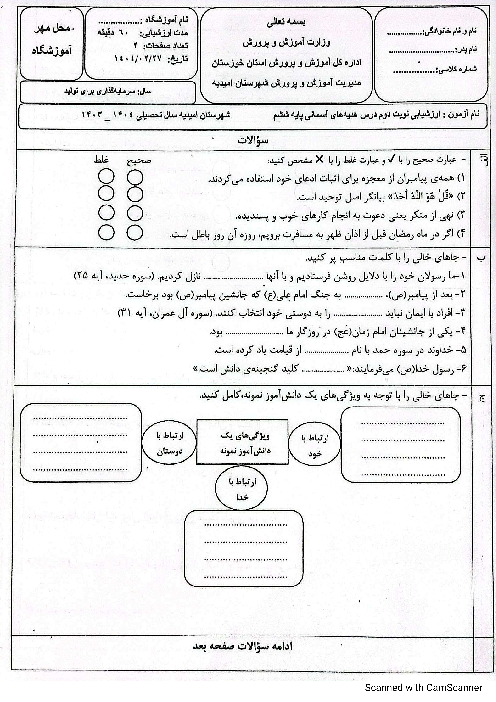 بسمه تعالی
وزارت آموزش و پرورش
اداره کل آموزش و پرورش استان خوزستان
مدیریت آموزش و پرورش شهرستان امیدیه
نام و نام خانوادگی:
نام پدر:
شماره کلاسی:
نام آموزشگاه :
مدت ارزشیابی: ۶۰ دقیقه
تعداد صفحات: ۲
تاریخ: ۱۴۰۴/۰۲/۲۷
محل مهر
آموزشگاه
سال: سرمایه‌گذاری برای تولید
نام آزمون : ارزشیابی نوبت دوم درس هدیه‌های آسمانی پایه ششم
شهرستان امیدیه سال تحصیلی ۱۴۰۴ _ ۱۴۰۳
سؤالات
الف
- عبارت صحیح را با ✓ و عبارت غلط را با ✗ مشخص کنید:
صحیح غلط
۱) همه‌ی پیامبران از معجزه برای اثبات ادعای خود استفاده می‌کردند.
۲) «قُل هُوَ اللّهُ اَحَد» بیانگر اصل توحید است.
۳) نهی از منکر یعنی دعوت به انجام کارهای خوب و پسندیده.
۴) اگر در ماه رمضان قبل از اذان ظهر به مسافرت برویم، روزه آن روز باطل است.
ب
- جاهای خالی را با کلمات مناسب پر کنید.
۱-ما رسولان خود را با دلایل روشن فرستادیم و با آنها .................. نازل کردیم. (سوره حدید، آیه ۲۵)
۲- بعد از پیامبر(ص)، .............. به جنگ امام علی(ع) که جانشین پیامبر(ص) بود برخاست.
۳- افراد با ایمان نباید .................. را به دوستی خود انتخاب کنند. (سوره آل عمران، آیه ۳۱)
۴- یکی از جانشینان امام زمان(عج) در روزگار ما .................. بود.
۵- خداوند در سوره حمد با نام .................. از قیامت یاد کرده است.
۶- رسول خدا(ص) می‌فرمایند:« .................. کلید گنجینه‌ی دانش است.»
ج
- جاهای خالی را با توجه به ویژگی‌های یک دانش‌آموز نمونه،کامل کنید.
ویژگی‌های یک
دانش‌آموز نمونه
ارتباط با
خود
ارتباط با
دوستان
ارتباط با
خدا
ادامه سؤالات صفحه بعد
Scanned with CamScanner